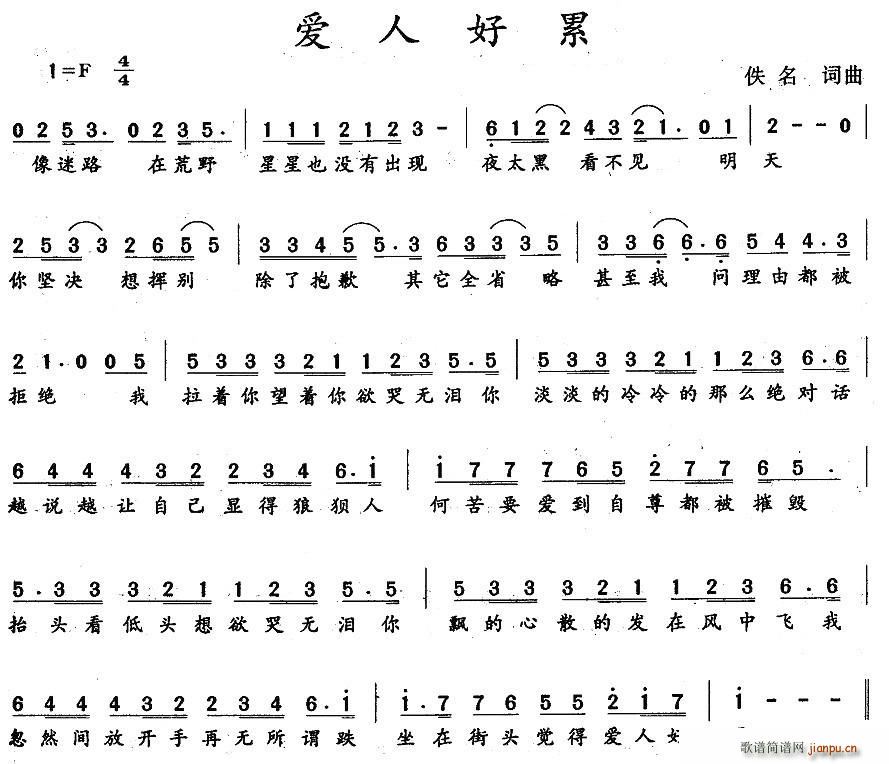 爱人好累
1=F 4/4 佚名 词曲
0 2 5 3· 0 2 3 5· | 1 1 1 2 1 2 3 - | 6 1 2 2 4 3 2 1· 0 1 | 2 - - 0
像迷路 在荒野 星星也没有出现 夜太黑 看不见 明天
2 5 3 3 2 6 5 5 | 3 3 4 5 5·3 6 3 3 3 5 | 3 3 6 6·6 5 4 4·3
你坚决 想挥别 除了抱歉 其它全省略 甚至我 问理由都被
2 1· 0 0 0 5 | 5 3 3 3 2 1 1 2 3 5·5 | 5 3 3 3 2 1 1 2 3 6·6
拒绝 我 拉着你望着你欲哭无泪你 淡淡的冷冷的那么绝对话
6 4 4 4 3 2 2 3 4 6·1 | 1 7 7 7 6 5 2 7 7 6 5·
越说越让自己显得狼狈人 何苦要爱到自尊都被摧毁
5·3 3 3 2 1 1 2 3 5·5 | 5 3 3 3 2 1 1 2 3 6·6
抬头看低头想欲哭无泪你 飘的心散的发在风中飞我
6 4 4 4 3 2 2 3 4 6·1 | 1·7 7 7 6 5 5 2 1 7 | 1 - - -
忽然间放开手再无所谓跌 坐在街头觉得爱人
歌谱简谱网 jianpu.cn